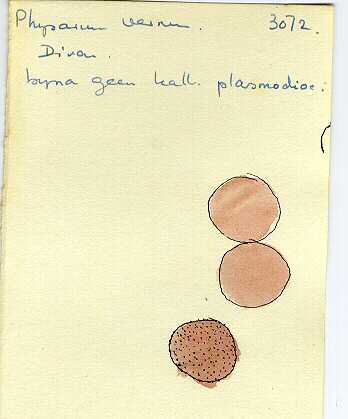 Physarum vernum. 3072.
Divon.
byna geen kalk. plasmodioc: